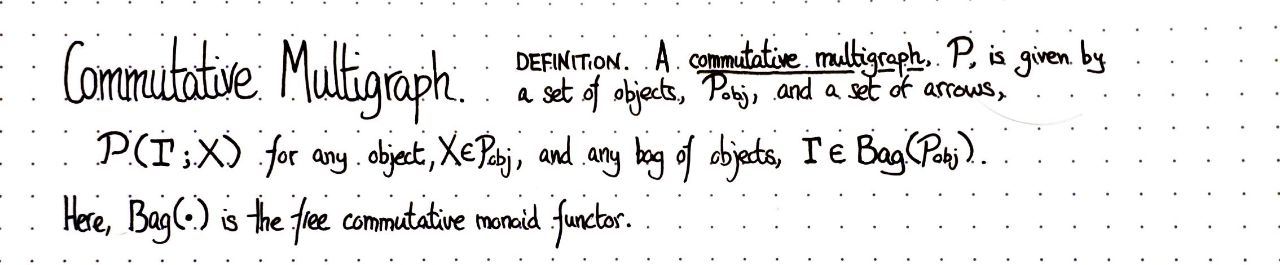 Commutative Multigraph. DEFINITION. A commutative multigraph, P, is given by
a set of objects, P_obj, and a set of arrows,
P(Γ;X) for any object, X∈P_obj, and any bag of objects, Γ∈Bag(P_obj).
Here, Bag(·) is the free commutative monoid functor.